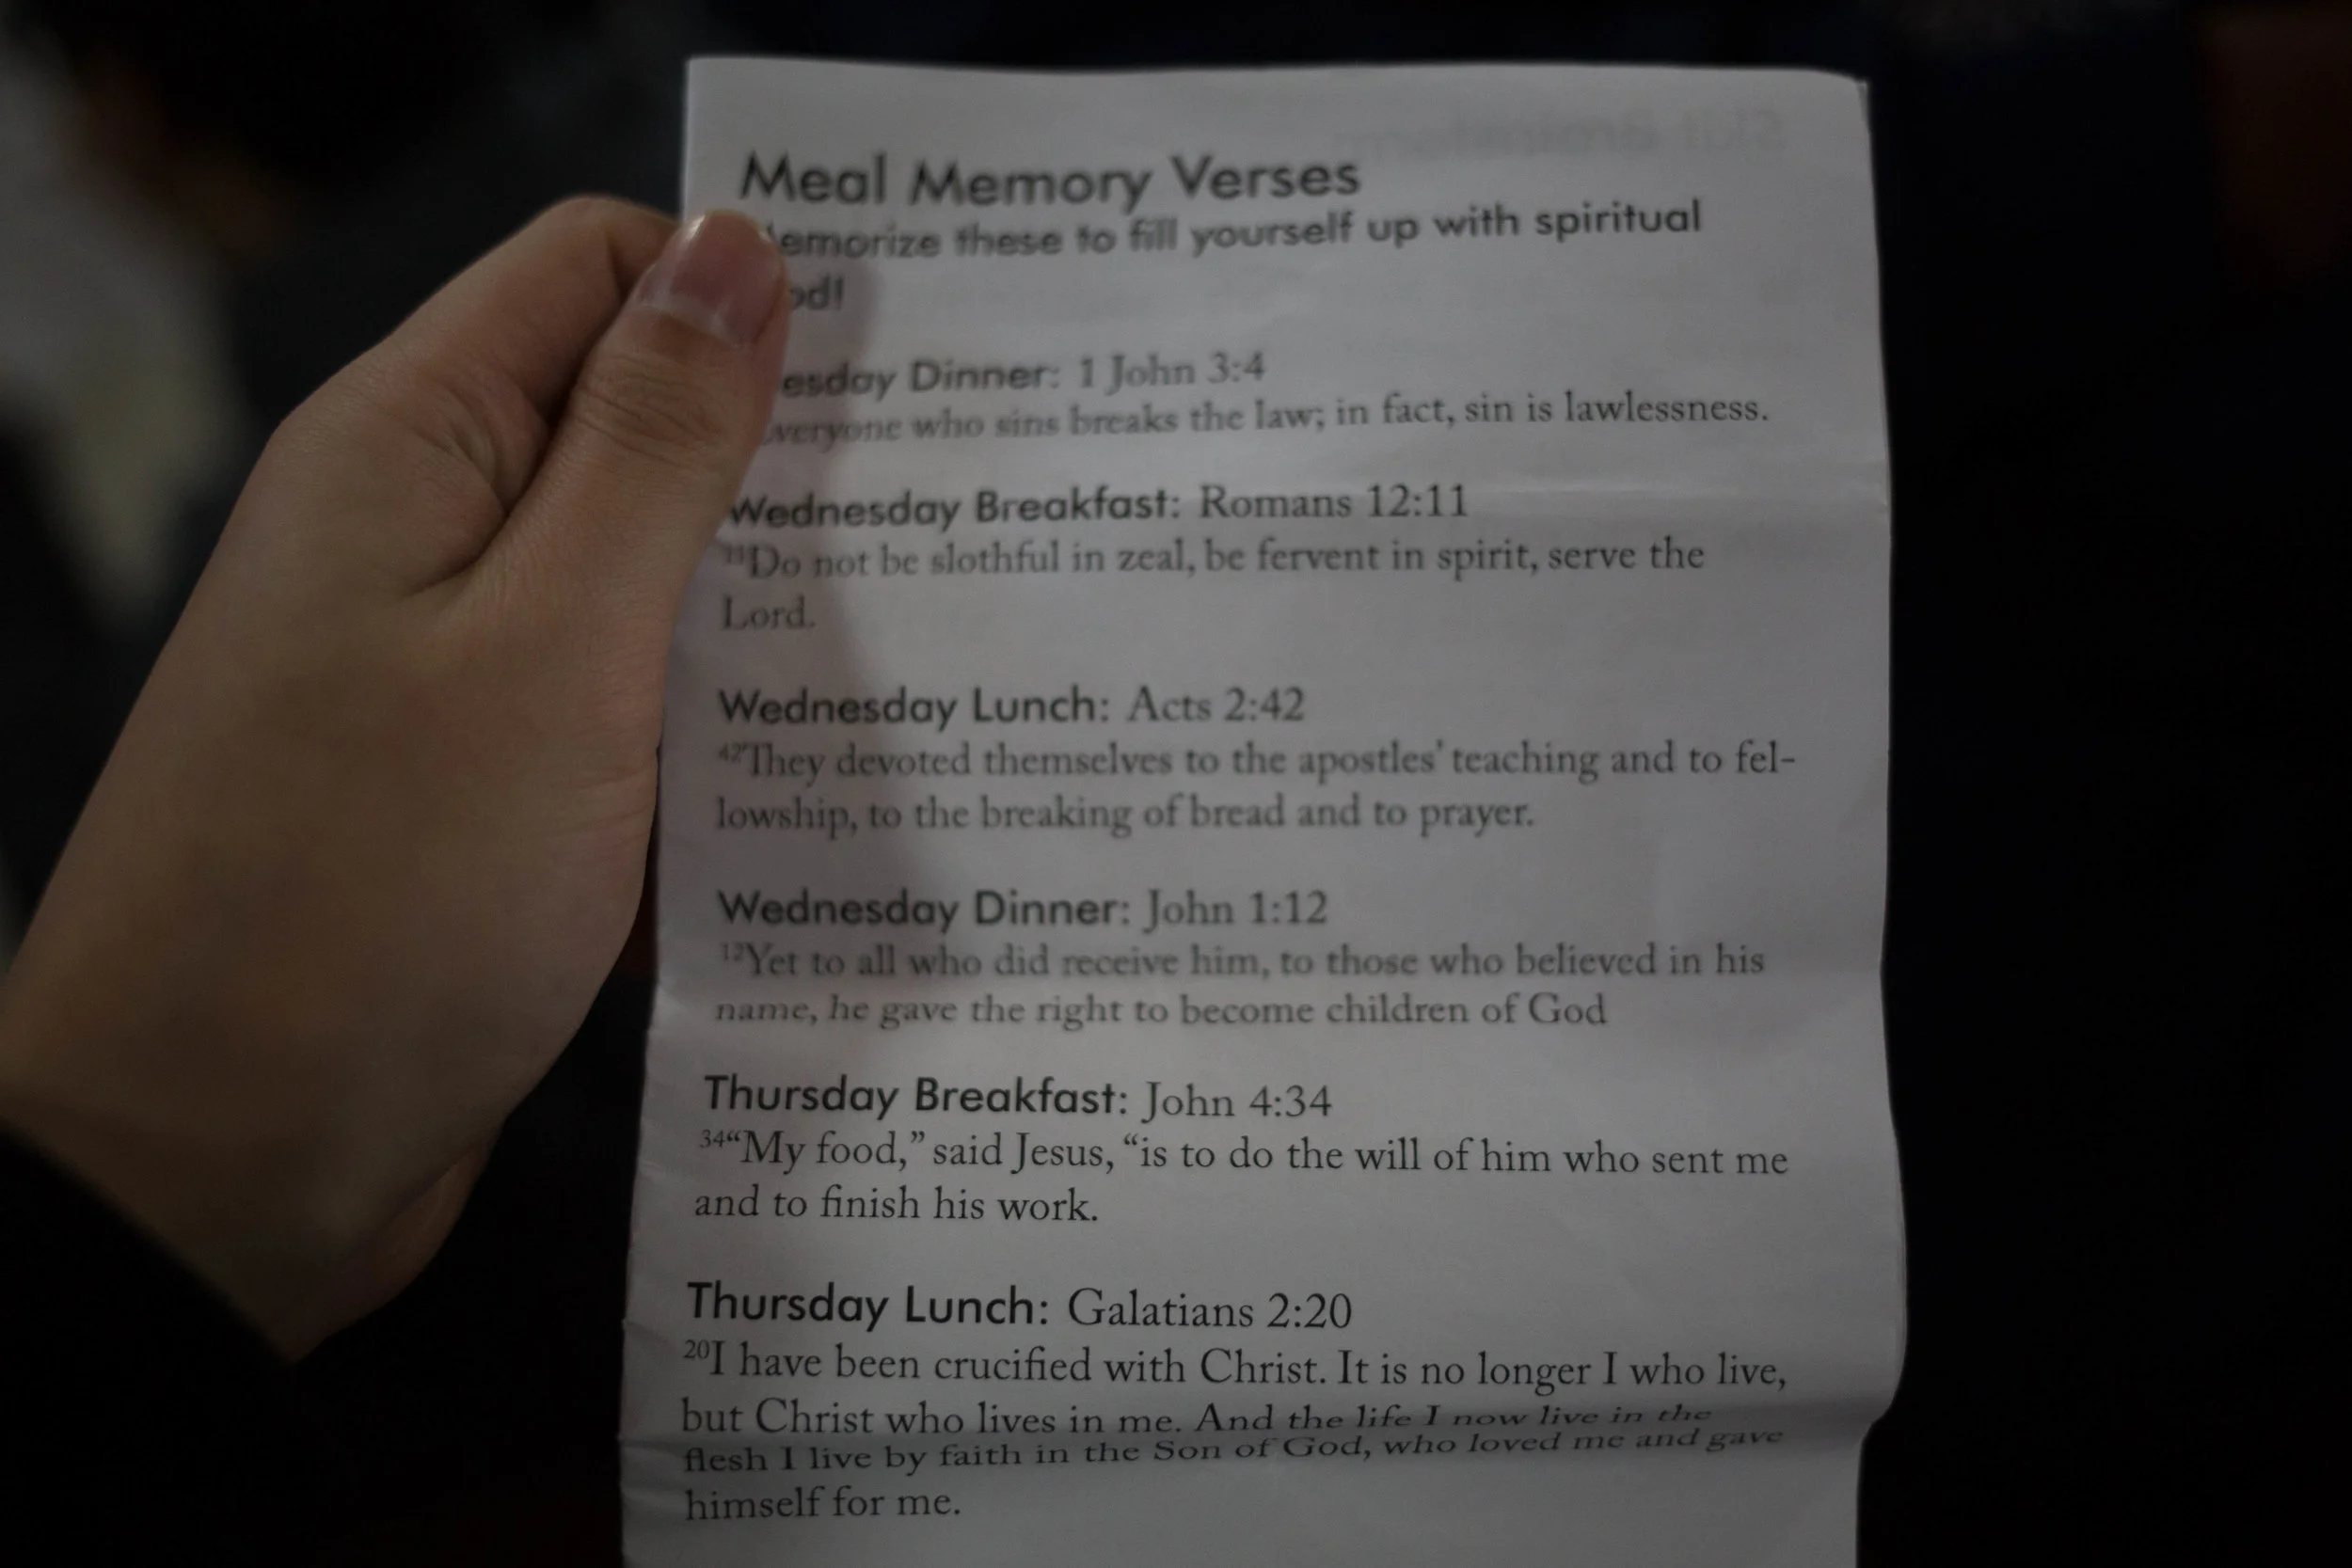 Meal Memory Verses
emorize these to fill yourself up with spiritual
od!
esday Dinner: 1 John 3:4
veryone who sins breaks the law; in fact, sin is lawlessness.
Wednesday Breakfast: Romans 12:11
¹¹Do not be slothful in zeal, be fervent in spirit, serve the
Lord.
Wednesday Lunch: Acts 2:42
⁴²They devoted themselves to the apostles’ teaching and to fel-
lowship, to the breaking of bread and to prayer.
Wednesday Dinner: John 1:12
¹²Yet to all who did receive him, to those who believed in his
name, he gave the right to become children of God
Thursday Breakfast: John 4:34
³⁴“My food,” said Jesus, “is to do the will of him who sent me
and to finish his work.
Thursday Lunch: Galatians 2:20
²⁰I have been crucified with Christ. It is no longer I who live,
but Christ who lives in me. And the life I now live in the
flesh I live by faith in the Son of God, who loved me and gave
himself for me.